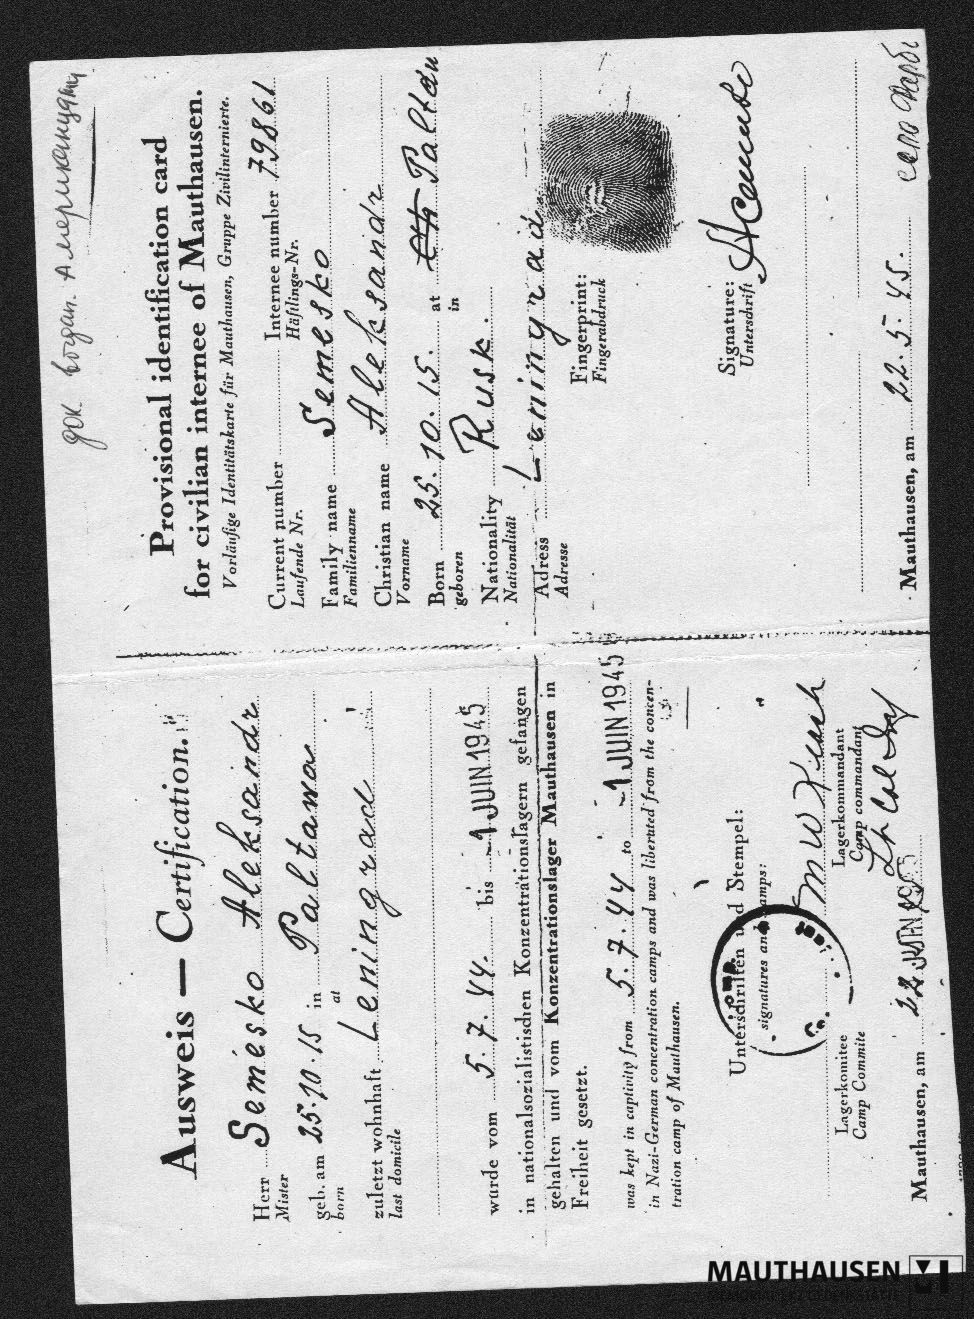 Ausweis — Certification.
Herr Semesko Aleksandr
Mister
geb. am 25.10.15 in Paltawa
born at
zuletzt wohnhaft Leningrad
last domicile
wurde vom 5. 7. 44. bis -1 JUIN 1945
in nationalsozialistischen Konzentrationslagern gefangen
gehalten und vom Konzentrationslager Mauthausen in
Freiheit gesetzt.
was kept in captivity from 5.7.44 to -1 JUIN 1945
in Nazi-German concentration camps and was liberated from the concen-
tration camp of Mauthausen.
Unterschriften und Stempel:
signatures and stamps:
Lagerkomitee Lagerkommandant
Camp Commite Camp commandant
Lt Col
Mauthausen, am
док. Американцами
Provisional identification card
for civilian internee of Mauthausen.
Vorläufige Identitätskarte für Mauthausen, Gruppe Zivilinternierte.
Current number Internee number 79861
Laufende Nr. Häftlings-Nr.
Family name Semesko
Familienname
Christian name Aleksandr
Vorname
Born 25.10.15. at Paltau
geboren in
Nationality Rusk.
Nationalität
Adress Leningrad
Adresse
Fingerprint:
Fingerabdruck
Signature:
Unterschrift
Mauthausen, am 22.5.45.
MAUTHAUSEN